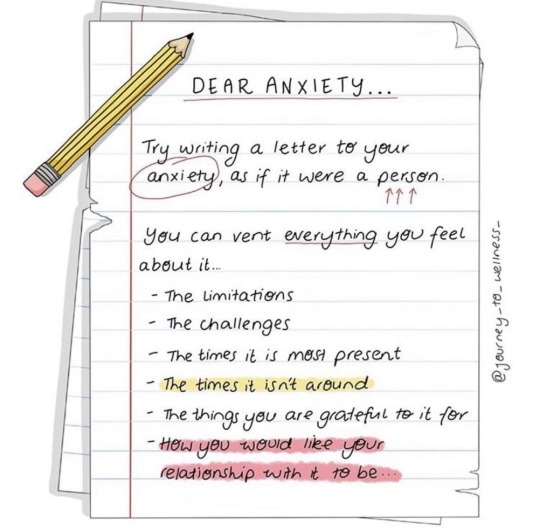 DEAR ANXIETY...
Try writing a letter to your
anxiety, as if it were a person.
You can vent everything you feel
about it...
- The limitations
- The challenges
- The times it is most present
- The times it isn't around
- The things you are grateful to it for
- How you would like your
relationship with it to be...
@journey_to_wellness_